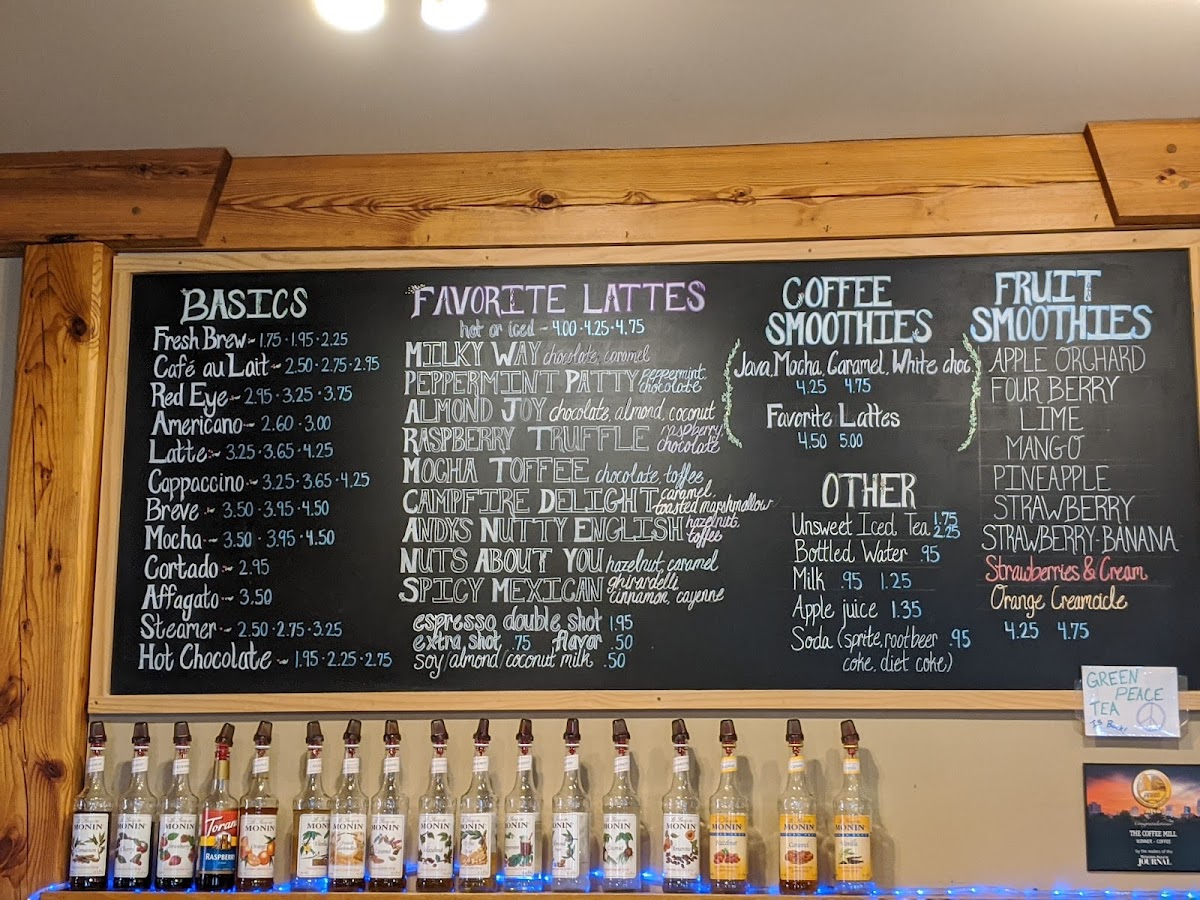 BASICS
Fresh Brew - 1.75 · 1.95 · 2.25
Café au Lait - 2.50 · 2.75 · 2.95
Red Eye - 2.95 · 3.25 · 3.75
Americano - 2.60 · 3.00
Latte - 3.25 · 3.65 · 4.25
Cappaccino - 3.25 · 3.65 · 4.25
Breve - 3.50 · 3.95 · 4.50
Mocha - 3.50 · 3.95 · 4.50
Cortado - 2.95
Affagato - 3.50
Steamer - 2.50 · 2.75 · 3.25
Hot Chocolate - 1.95 · 2.25 · 2.75
FAVORITE LATTES
hot or iced - 4.00 · 4.25 · 4.75
MILKY WAY chocolate, caramel
PEPPERMINT PATTY peppermint, chocolate
ALMOND JOY chocolate, almond, coconut
RASPBERRY TRUFFLE raspberry, chocolate
MOCHA TOFFEE chocolate, toffee
CAMPFIRE DELIGHT caramel, toasted marshmallow
ANDYS NUTTY ENGLISH hazelnut, toffee
NUTS ABOUT YOU hazelnut, caramel
SPICY MEXICAN ghirardelli, cinnamon, cayenne
espresso double shot 1.95
extra shot .75 flavor .50
soy/almond/coconut milk .50
COFFEE
SMOOTHIES
Java, Mocha, Caramel, White choc
4.25 4.75
Favorite Lattes
4.50 5.00
OTHER
Unsweet Iced Tea 1.75 2.25
Bottled Water .95
Milk .95 1.25
Apple juice 1.35
Soda (sprite, rootbeer .95
coke, diet coke)
FRUIT
SMOOTHIES
APPLE ORCHARD
FOUR BERRY
LIME
MANGO
PINEAPPLE
STRAWBERRY
STRAWBERRY-BANANA
Strawberries & Cream
Orange Creamcicle
4.25 4.75
GREEN
PEACE
TEA
Is Back
MONIN
MONIN
MONIN
Torani
RASPBERRY
MONIN
MONIN
MONIN
MONIN
MONIN
MONIN
MONIN
MONIN
MONIN
MONIN
MONIN
Hazelnut
MONIN
Caramel
MONIN
Vanilla
Congratulations
THE COFFEE MILL
WINNER - COFFEE
by the readers of the
JOURNAL